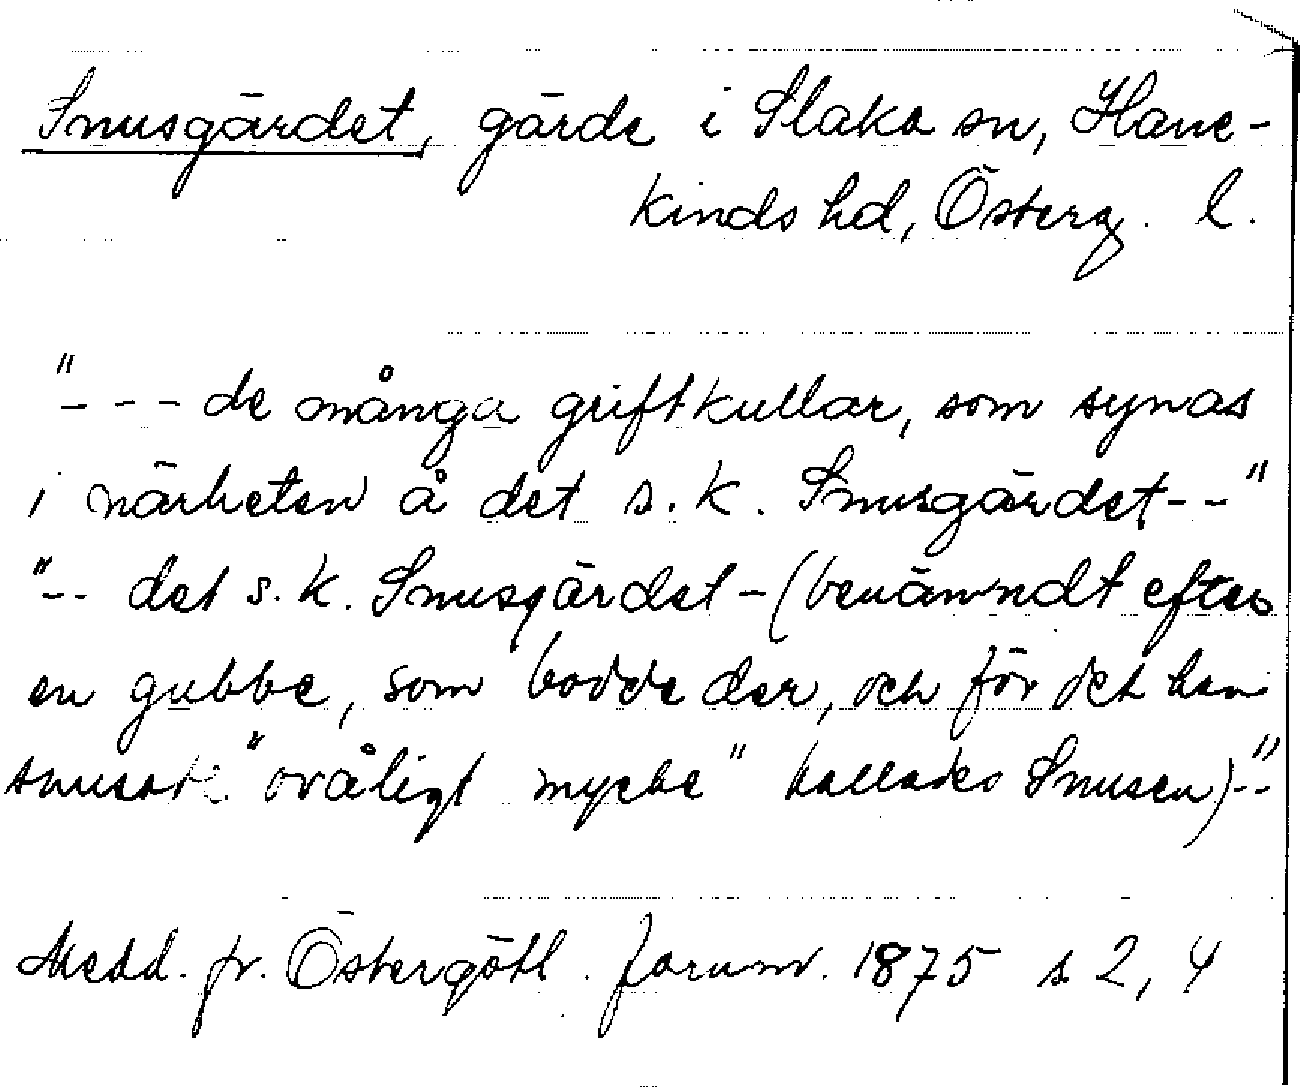 Snusgärdet, gärde i Slaka sn, Hane-
kinds hd, Österg. l.
"--- de många griftkullar, som synas
i närheten å det s.k. Snusgärdet--"
"-- det s.k. Snusgärdet -(benämndt efter
en gubbe, som bodde der, och för det han
snusade "oväligt mycke" kallades Snusen)--"
Medd. fr. Östergötl. fornm. 1875 s 2, 4